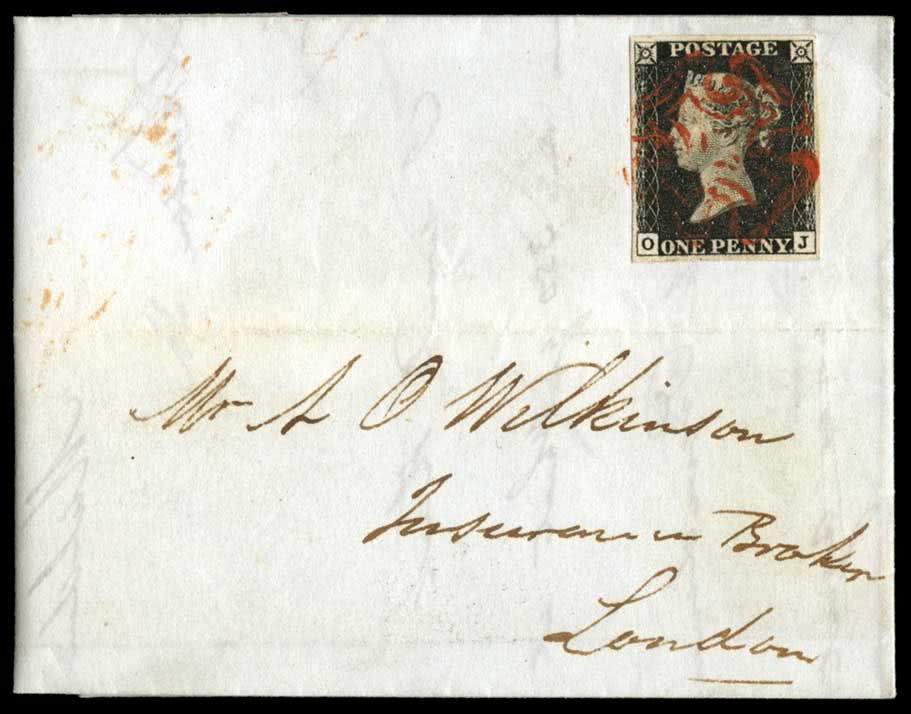 POSTAGE
O ONE PENNY J
Mr A O Wilkinson
Insurance Broker
London